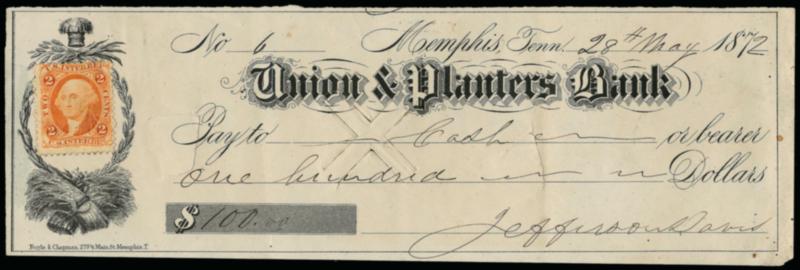 No 6 Memphis, Tenn. 28th May 1872
Union & Planters Bank
Pay to Cash or bearer
One hundred Dollars
$100.00
Jefferson Davis
2 2
TWO CENTS
2 2
Boyle & Chapman, 279½ Main St. Memphis, T.